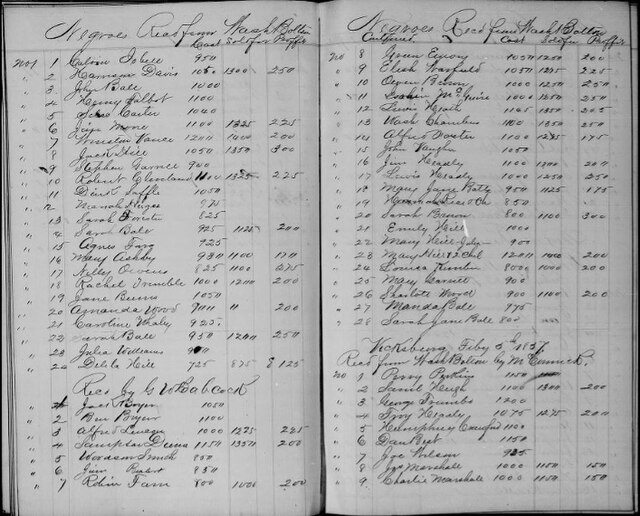 Negroes Recd from Wash Bolton
Cost Sold for Profits
No 1 Calvin Isbell 950
2 Harrison Davis 1050 1300 250
3 John Bale 1000
4 Henry Talbot 1100
5 Carter 1040
6 Moore 1100 1325 225
7 Winston Vance 1200 1400 200
8 Jack Hill 1050 1350 300
9 Stephen Garner 900
10 Robert Cleveland 1100 1325 225
11 1050
12 Mariah 875
13 Sarah Forister 825
14 Sarah Bale 925 1125 200
15 Agnes 925
16 Mary Ashby 930 1100 170
17 Nelly Owens 825 1100 275
18 Rachel Trimble 1000 1200 200
19 Jane Burns 1050
20 Amanda Wood 900 " 200
21 Caroline Whaly 925
22 Sarah Bale 950 1200 250
23 Julia Williams 900
24 Delila Hill 725 875 125
Recd by G W Babcock
1 Jack Boyer 1050
2 Ben Bryer 1100
3 Alfred 1000 1275 225
4 Sampson Dean 1150 1350 200
5 Wordson Smith 850
6 Jim 850
7 Robin Fam 800 1000 200
Negroes Recd from Wash Bolton
Continued Cost Sold for Profits
No 8 Green Emory 1050 1250 200
9 Elish Warfield 1050 1275 225
10 Owen 1050 1250 200
11 McGuire 1000 1250 250
12 Lewis Heath 1145 1350 205
13 Wash Chambers 1100 1350 250
14 Alfred Foster 1100 1275 175
15 John Vaughn 1050
16 Jim Heady 1100 1200
17 Lewis Heady 1000 1250 250
18 Mary Jane Baty 950 1125 175
19 850
20 Sarah Brown 800 1100 300
21 Emily Hill 1000
22 Mary Hill 900
23 Mary Hill & 2 Chil 1200 1400 200
24 Louisa Kimber 800 1000 200
25 Mary Garnett 900
26 Sharlote Wood 900 1100 200
27 Manda Bale 775
28 Sarah Jane Bale 800
Vicksburg Feby 5th 1857
Recd from Wash Bolton by McCormick
No 1 Perry Perkins 1150
2 Saml Hugh 1100 1300 200
3 George Trumbo 1200
4 Troy Heady 1075 1275 200
5 Humphrey Crawford 1100
6 Dan Best 1150
7 Joe Wilson 925
8 Joe Marshall 1000 1150 150
9 Charlie Marshall 1000 1150 150